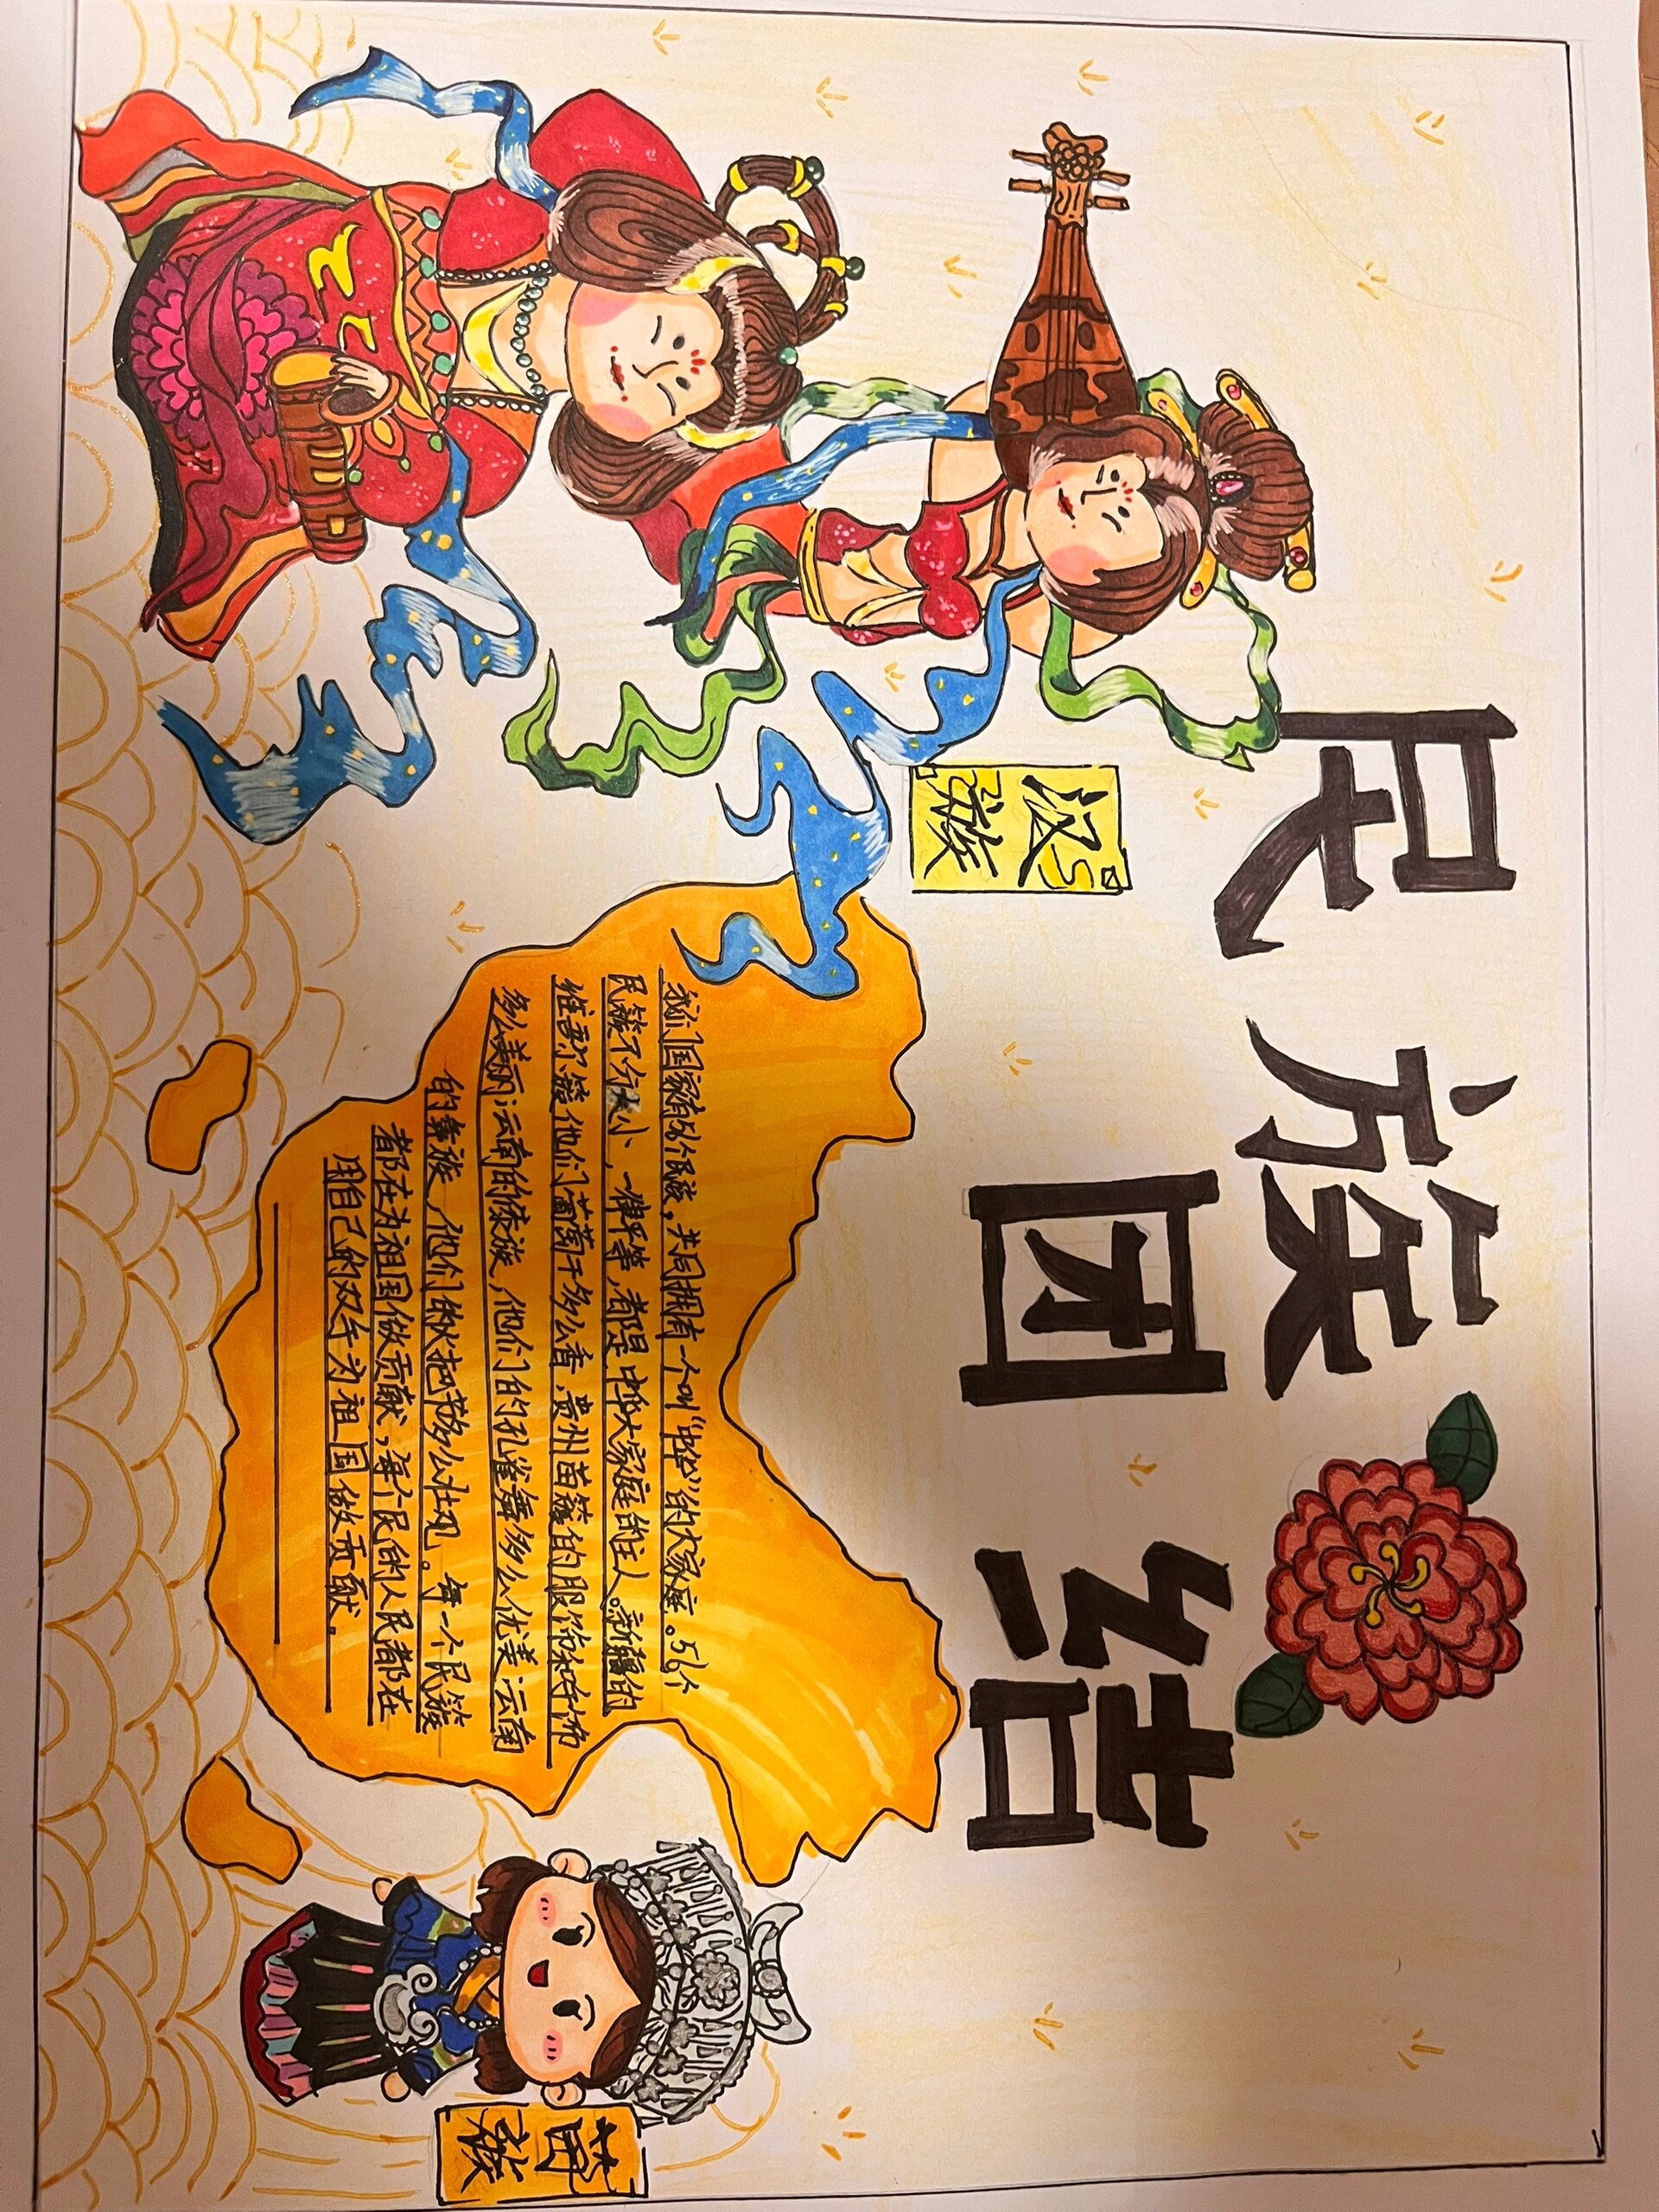 民族
团结
汉族
我们国家有56个民族，共同拥有一个叫“中华”的大家庭。56个
民簇不分大小，一律平等，都是中华大家庭的主人。新疆的
维吾尔簇他们葡萄干多么香，贵州苗簇的服饰
多么美丽；云南的傣族，他们的孔雀舞多么优美；云南
的彝族，他们的火把节多么壮观。每一个民簇
都在为祖国做贡献，每个民的人民都在
用自己的双手为祖国做贡献.
苗族